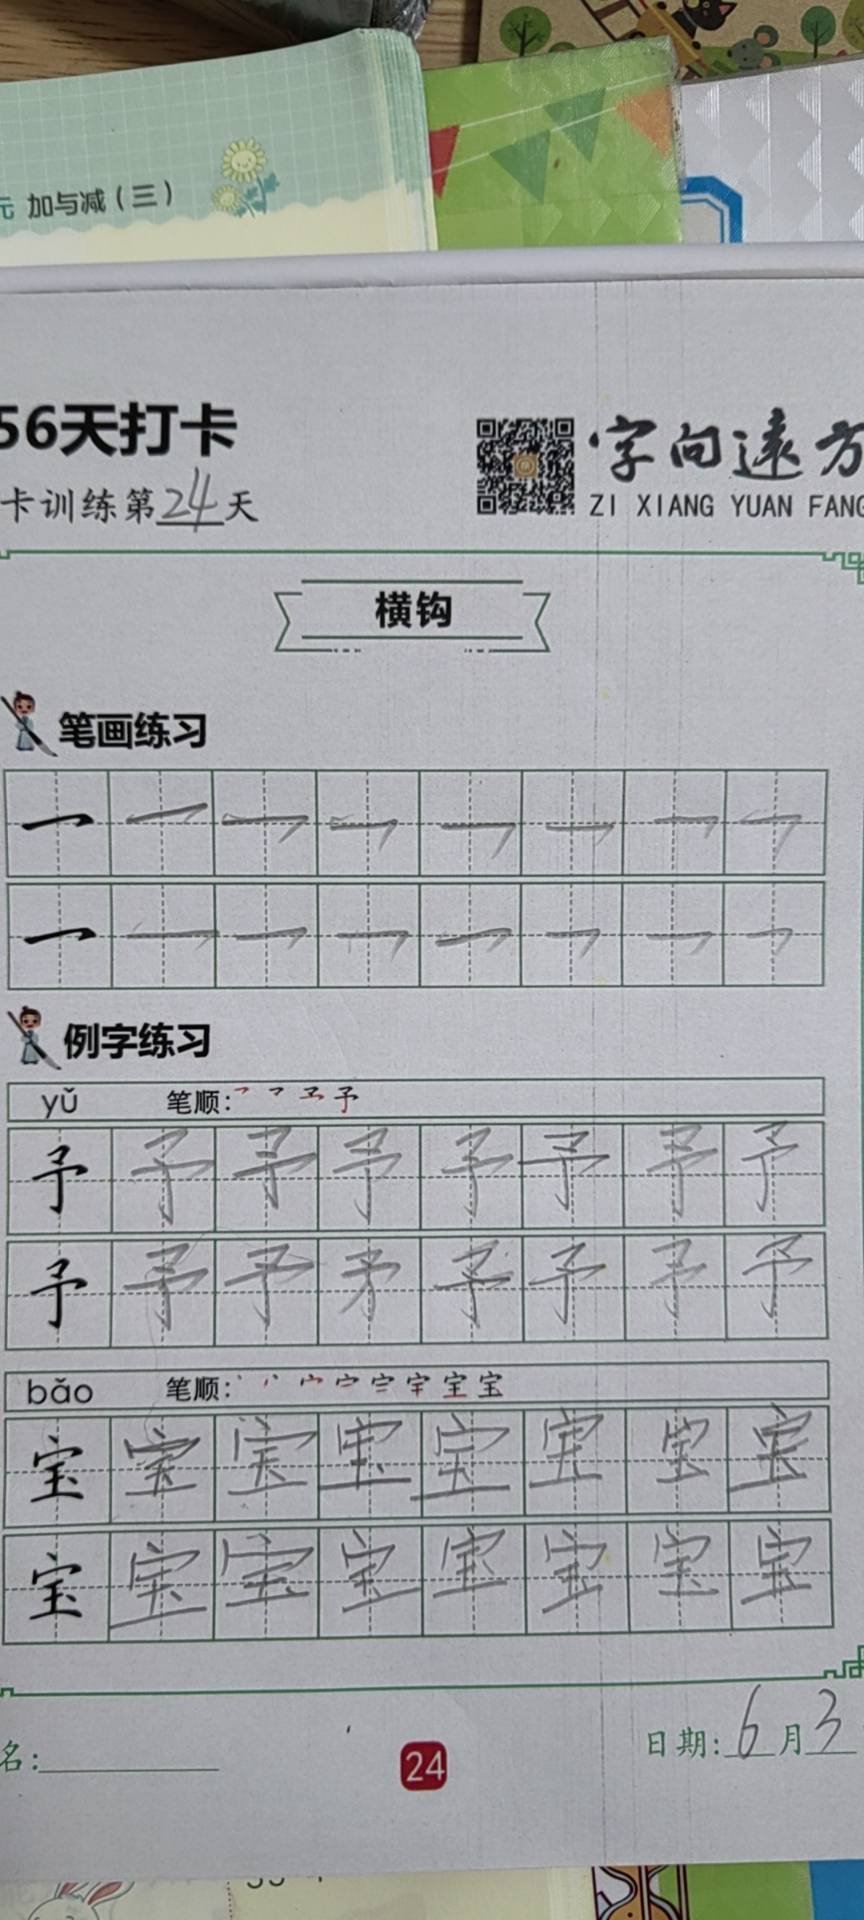 元 加与减（三）
56天打卡
字向远方
卡训练第24天
ZI XIANG YUAN FANG
横钩
笔画练习
例字练习
yǔ 笔顺: 予
予 予 予 予 予 予 予 予
予 予 予 矛 予 予 予 予
bǎo 笔顺: 宝
宝 宝 宝 宝 宝 宝 宝 宝
宝 宝 宝 宝 宝 宝 宝 宝
名:
24
日期: 6月3